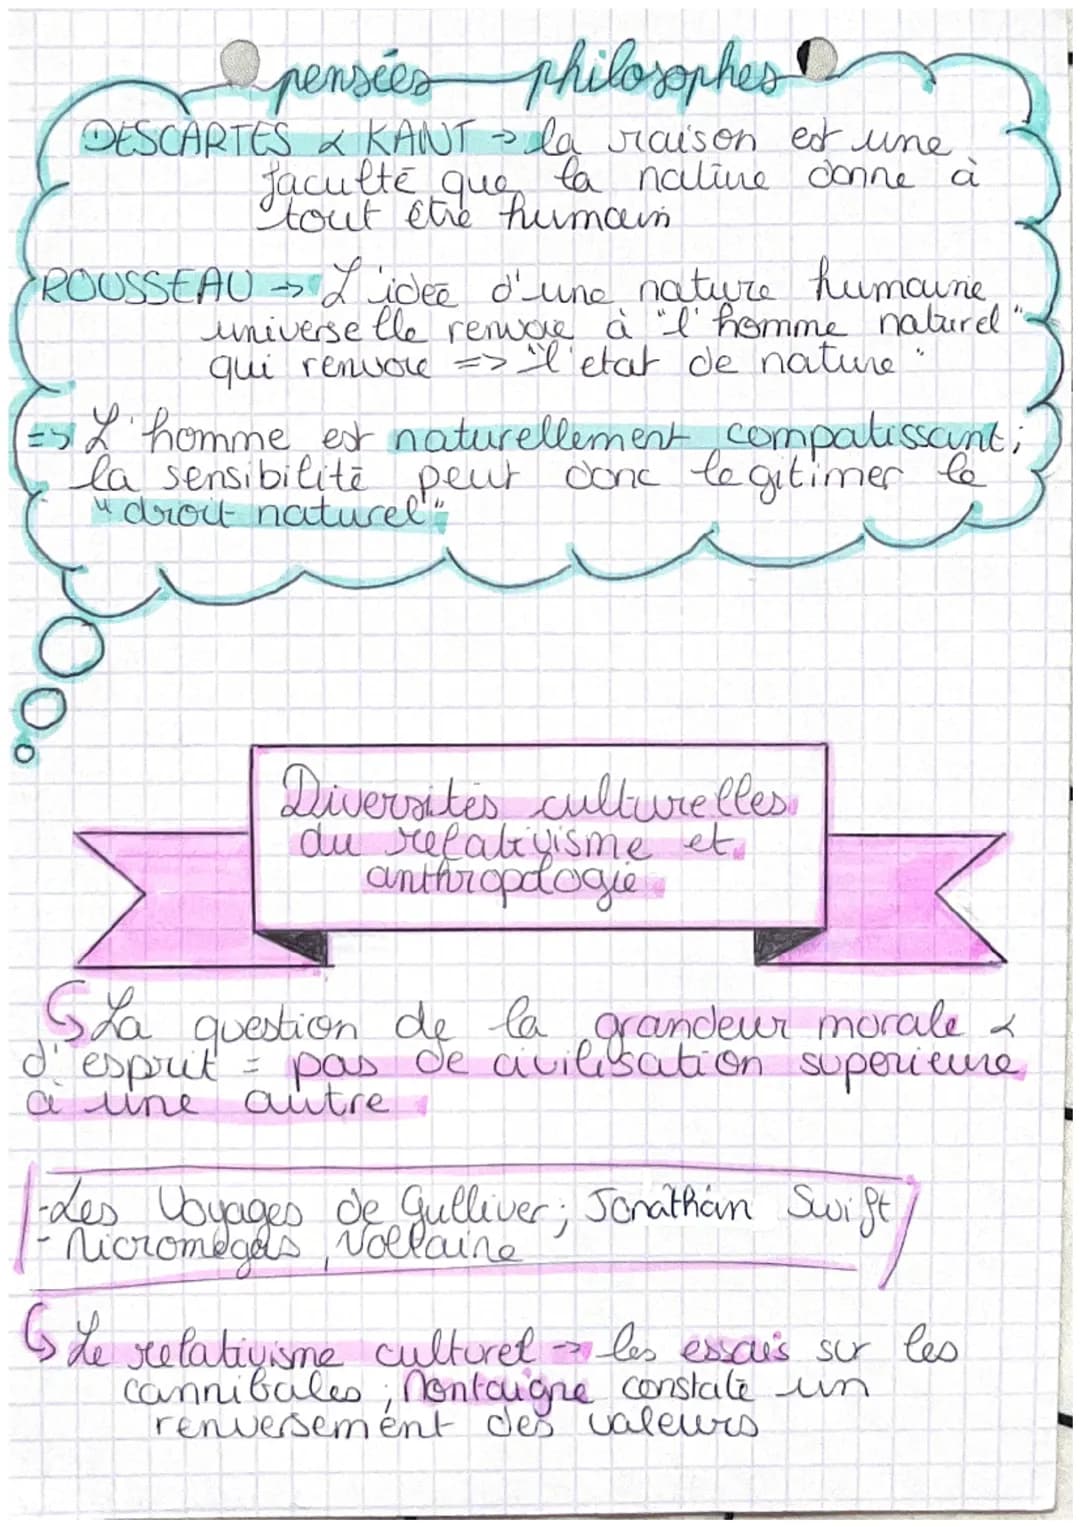 pensées philosophes
DESCARTES & KANT → la raison est une
faculté que la nature donne à
tout être humain
ROUSSEAU → L'idée d'une nature humaine
universelle renvoie à "l'homme naturel"
qui renvoie => "l'etat de nature"
=> L'homme est naturellement compatissant;
la sensibilité peut donc legitimer le
"droit naturel"
Diversités culturelles
du relativisme et
anthropologie
La question de la grandeur morale &
d'esprit = pas de civilisation superieure
à une autre
-Les Voyages de Gulliver; Jonathan Swift
- Micromégas, Voltaire
Le relativisme culturel → les essais sur les
cannibales; Montaigne constate un
renversement des valeurs